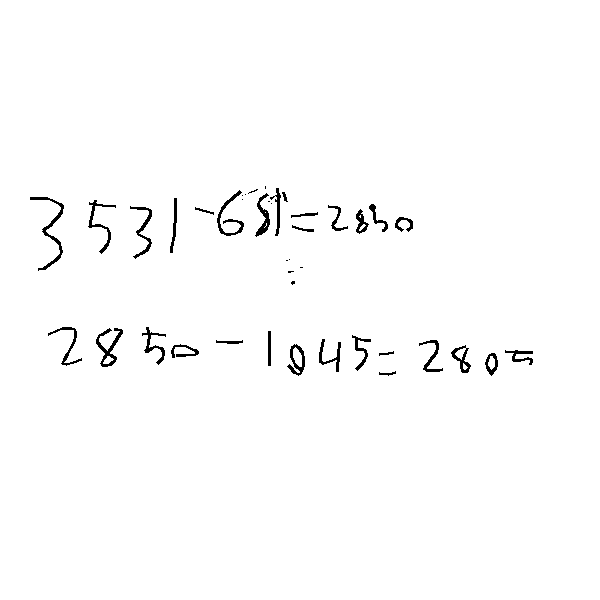 3531-681=2850
2850-1045=2805